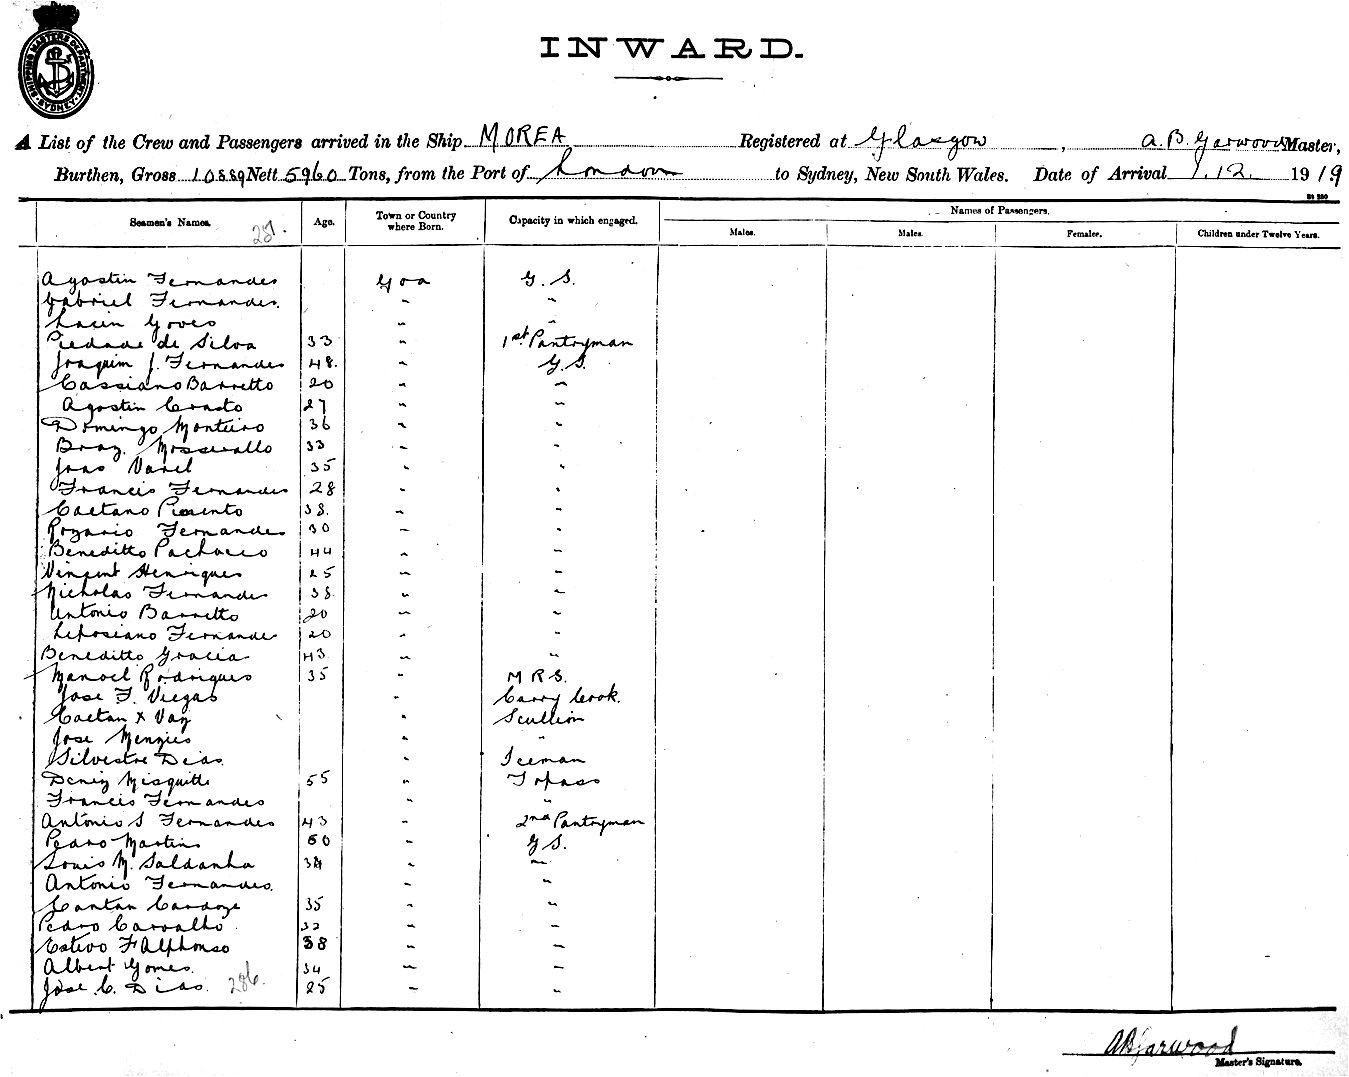 SHIPPING MASTERS DEPARTMENT SYDNEY
INWARD.
A List of the Crew and Passengers arrived in the Ship MOREA Registered at Glasgow, A. B. Garwood Master,
Burthen, Gross 10889 Nett 5960 Tons, from the Port of London to Sydney, New South Wales. Date of Arrival 1.12. 1919
Seamen's Names. Age. Town or Country where Born. Capacity in which engaged. Names of Passengers.
Males. Males. Females. Children under Twelve Years.
Agostin Fernandes Goa G. S.
Gabriel Fernandes. " "
" "
Piedade de Silva 33 " 1st Pantryman
Joaquim J. Fernandes 48. " G. S.
Cassiano Barretto 20 " "
Agostin Crasto 27 " "
Domingo Monteiro 36 " "
Braz. 33 " "
Joao Varel 35 " "
Francis Fernandes 28 " "
Caetano 38. " "
Rozario Fernandes 30 " "
Beneditto Pacheco 44 " "
Vincent Henriques 25 " "
Nicholas Fernandes 38 " "
Antonio Barretto 20 " "
Fernandes 20 " "
Beneditto Gracia 43 " "
Manoel Rodrigues 35 " M R S.
Jose F. Viegas " Carry Cook.
Caetan X Vaz " Scullion
Jose Menzies " "
Silvestre Dias. " Iceman
Deniz Misquitte 55 " Topass
Francis Fernandes " "
Antonio S Fernandes 43 " 2nd Pantryman
Pedro Martins 50 " G S.
Louis M. Saldanha 34 " "
Antonio Fernandes. " "
Caetan Cardoze 35 " "
Pedro Carvalho 32 " "
Estevo F Alphonso 38 " "
Albert Gomes. 34 " "
Jose C. Dias. 286. 25 " "
A B Garwood
Master's Signature.